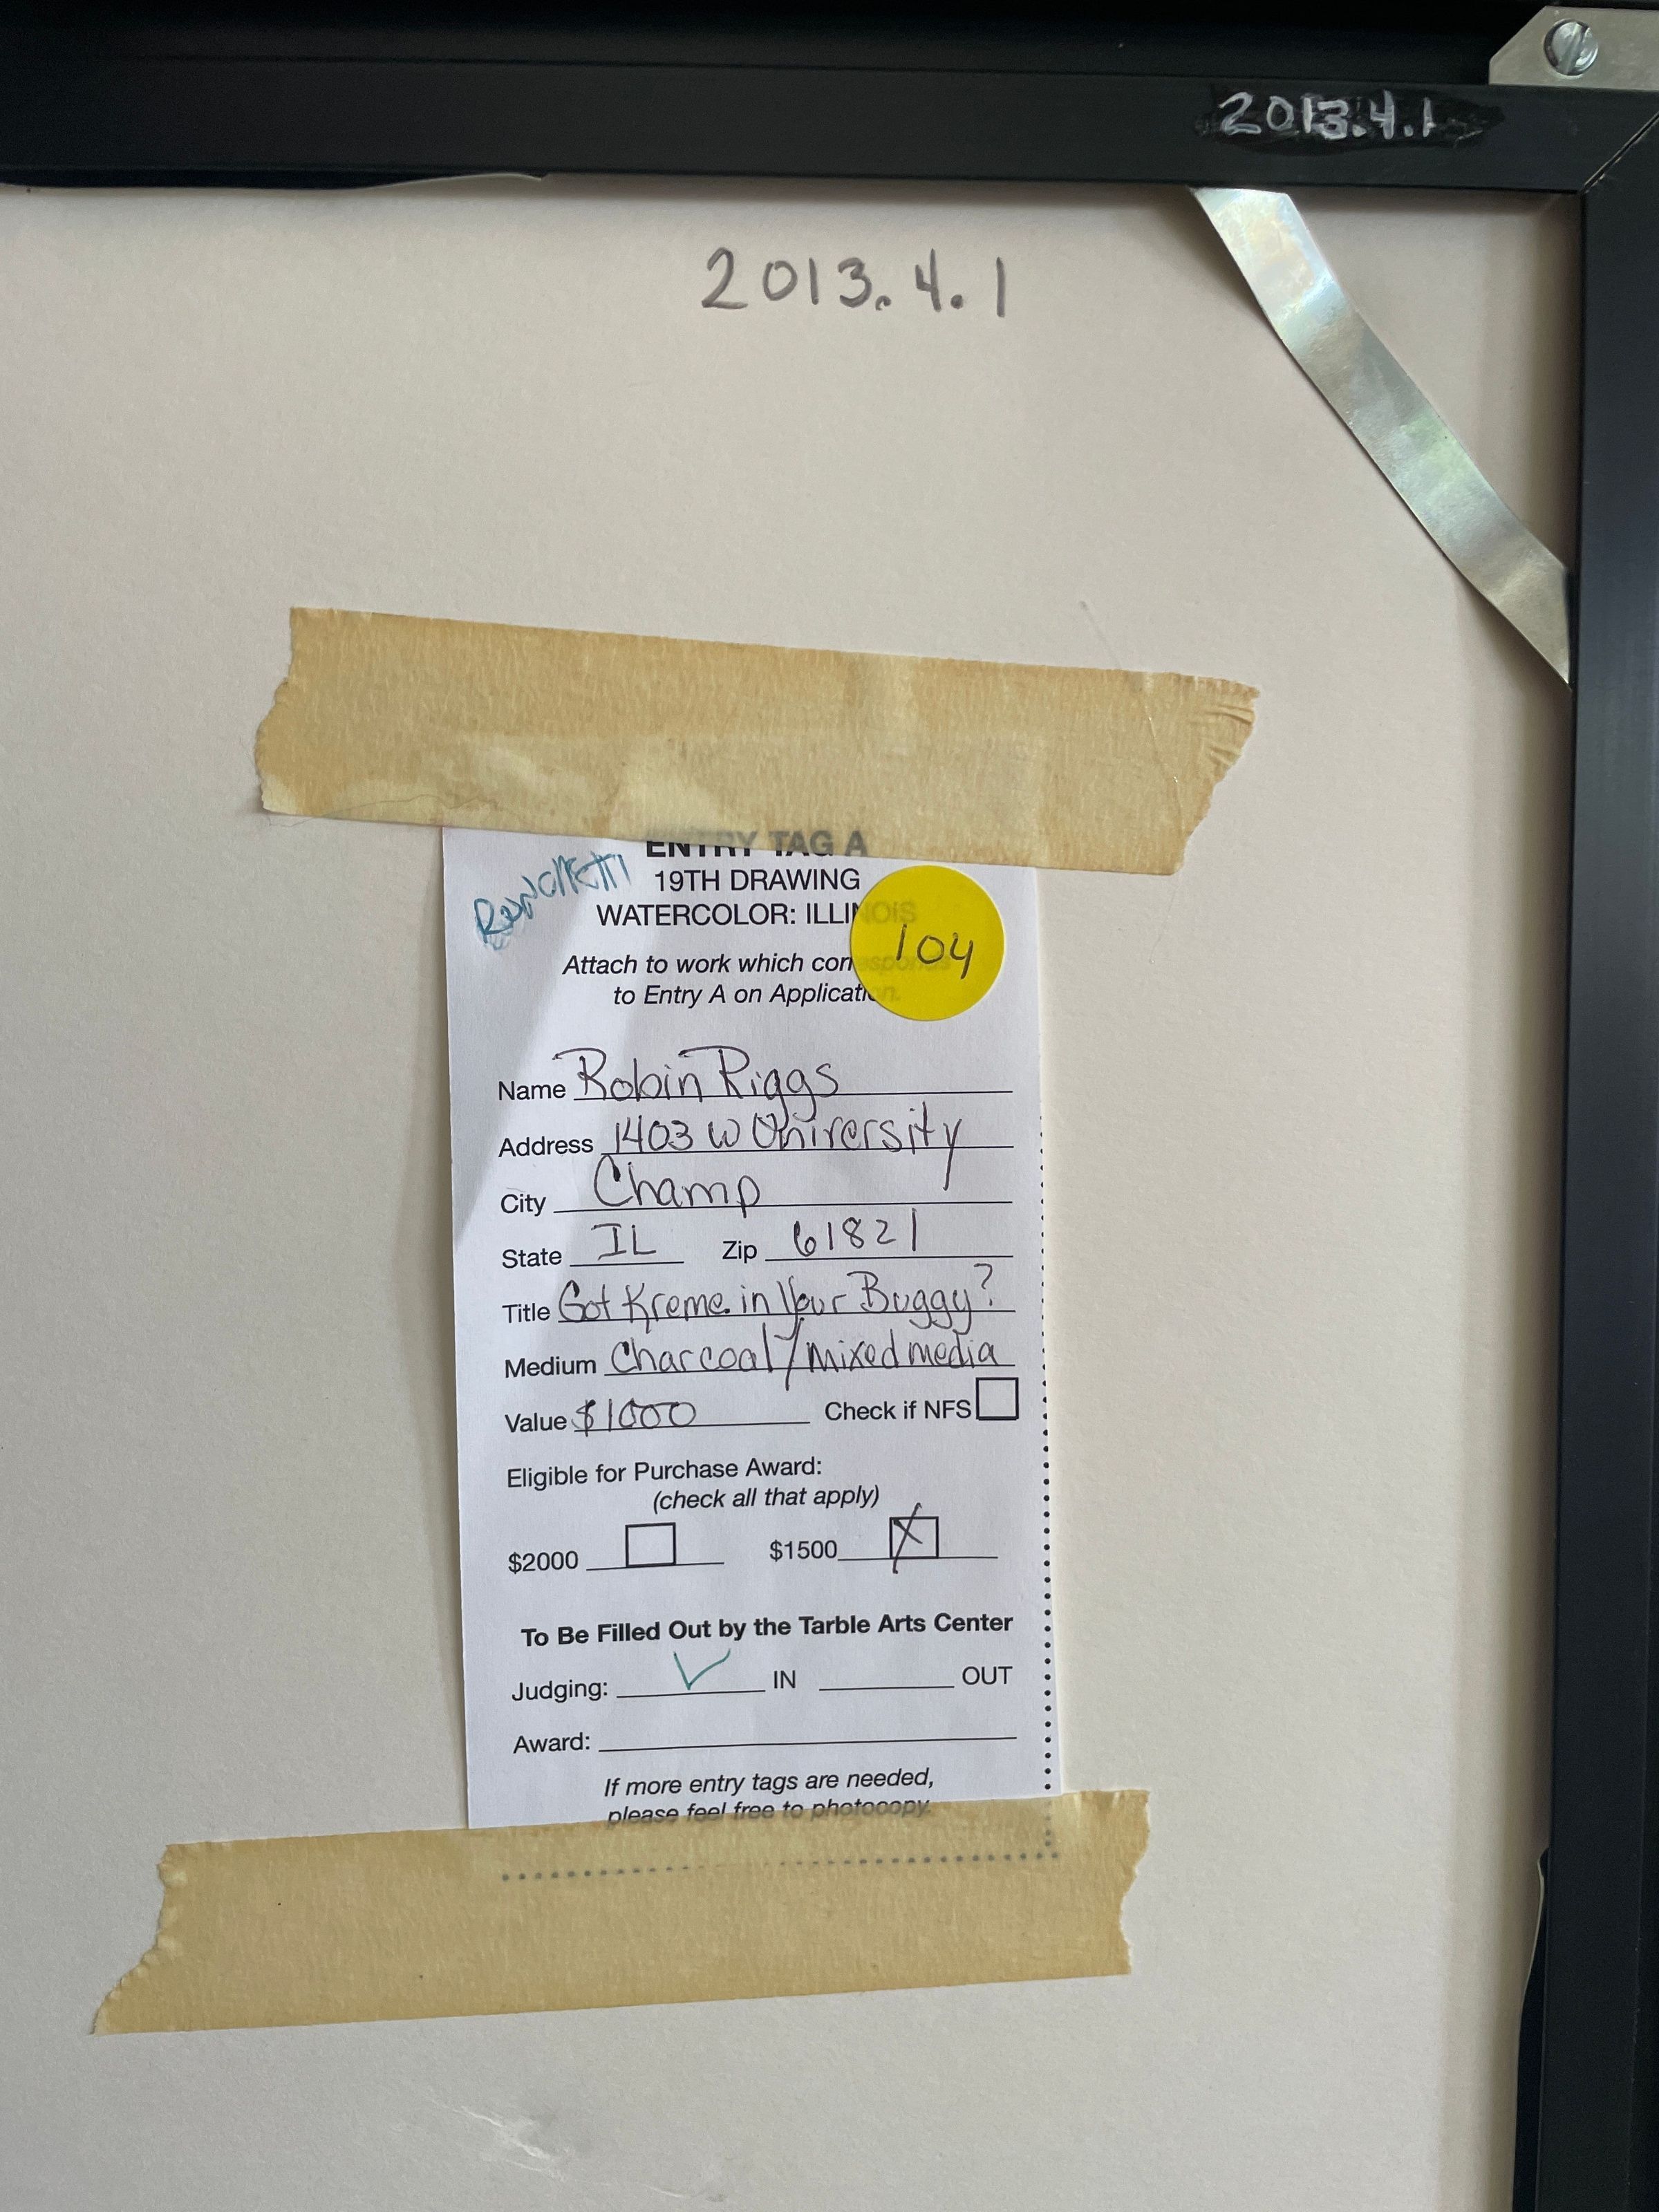 2013.4.1
2013.4.1
ENTRY TAG A
19TH DRAWING
WATERCOLOR: ILLINOIS
104
Attach to work which corresponds
to Entry A on Application.
Name Robin Riggs
Address 1403 W University
City Champ
State IL Zip 61821
Title Got Kreme in Your Buggy?
Medium Charcoal/mixed media
Value $1000 Check if NFS
Eligible for Purchase Award:
(check all that apply)
$2000 $1500
To Be Filled Out by the Tarble Arts Center
Judging: IN OUT
Award:
If more entry tags are needed,
please feel free to photocopy.